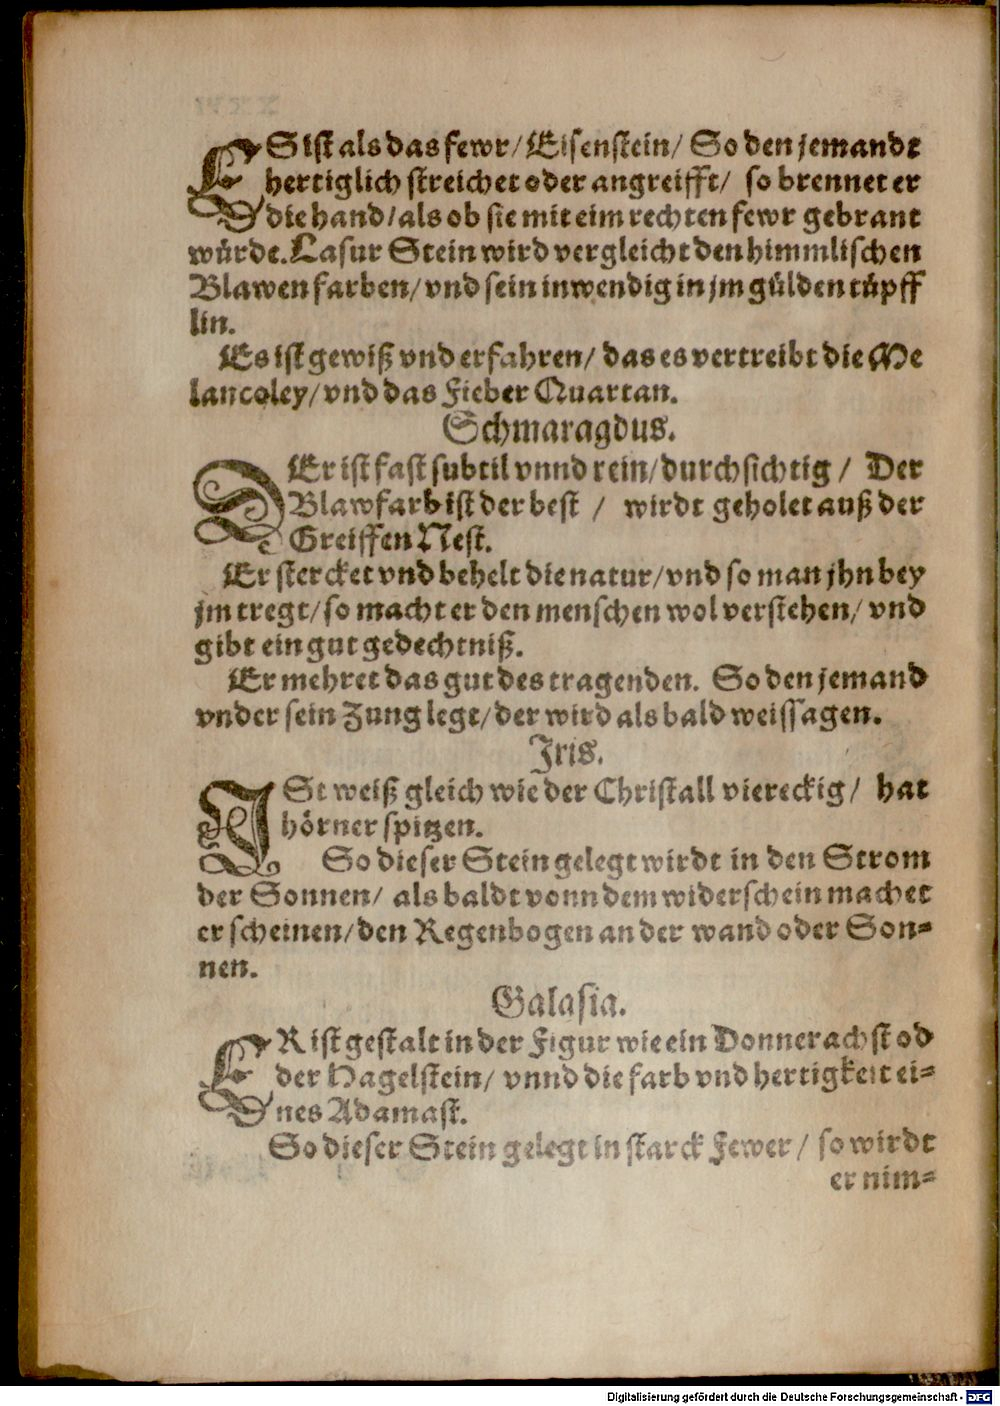 ES ist als das fewr/ Eisenstein/ So den jemandt
hertiglich streichet oder angreifft/ so brennet er
die hand/ als ob sie mit eim rechten fewr gebrant
würde. Lasur Stein wird vergleicht den himmlischen
Blawen farben/ vnd sein inwendig in jm gülden tüpff
lin.
Es ist gewiß vnd erfahren/ das es vertreibt die Me
lancoley/ vnd das Fieber Quartan.
Schmaragdus.
DEr ist fast subtil vnnd rein/ durchsichtig / Der
Blawfarb ist der best / wirdt geholet auß der
Greiffen Nest.
Er stercket vnd behelt die natur/ vnd so man jhn bey
jm tregt/ so macht er den menschen wol verstehen/ vnd
gibt ein gut gedechtniß.
Er mehret das gut des tragenden. So den jemand
vnder sein Zung legt/ der wird als bald weissagen.
Iris.
ISt weiß gleich wie der Christall viereckig/ hat
hörner spitzen.
So dieser Stein gelegt wirdt in den Strom
der Sonnen/ als baldt vonn dem widerschein machet
er scheinen/ den Regenbogen an der wand oder Son=
nen.
Galasia.
ER ist gestalt in der Figur wie ein Donnerachst od
der Hagelstein/ vnnd die farb vnd hertigkeit ei=
nes Adamast.
So dieser Stein gelegt in starck Fewer / so wirdt
er nim=
Digitalisierung gefördert durch die Deutsche Forschungsgemeinschaft - DFG